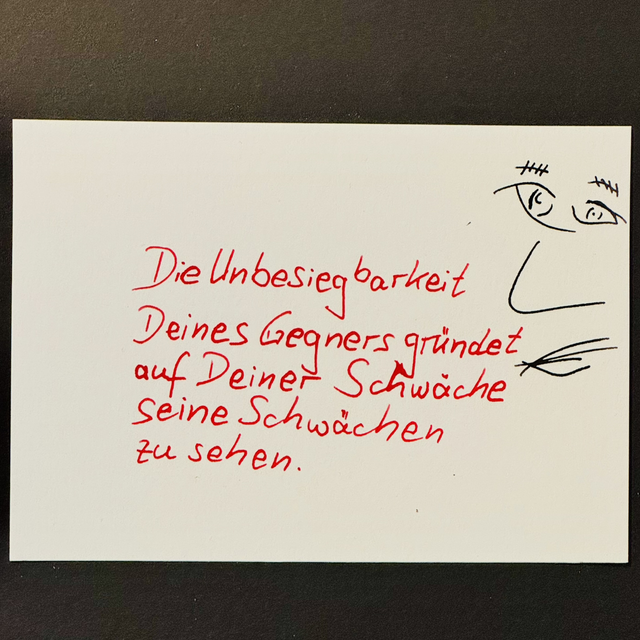 Die Unbesiegbarkeit
Deines Gegners gründet
auf Deiner Schwäche
seine Schwächen
zu sehen.